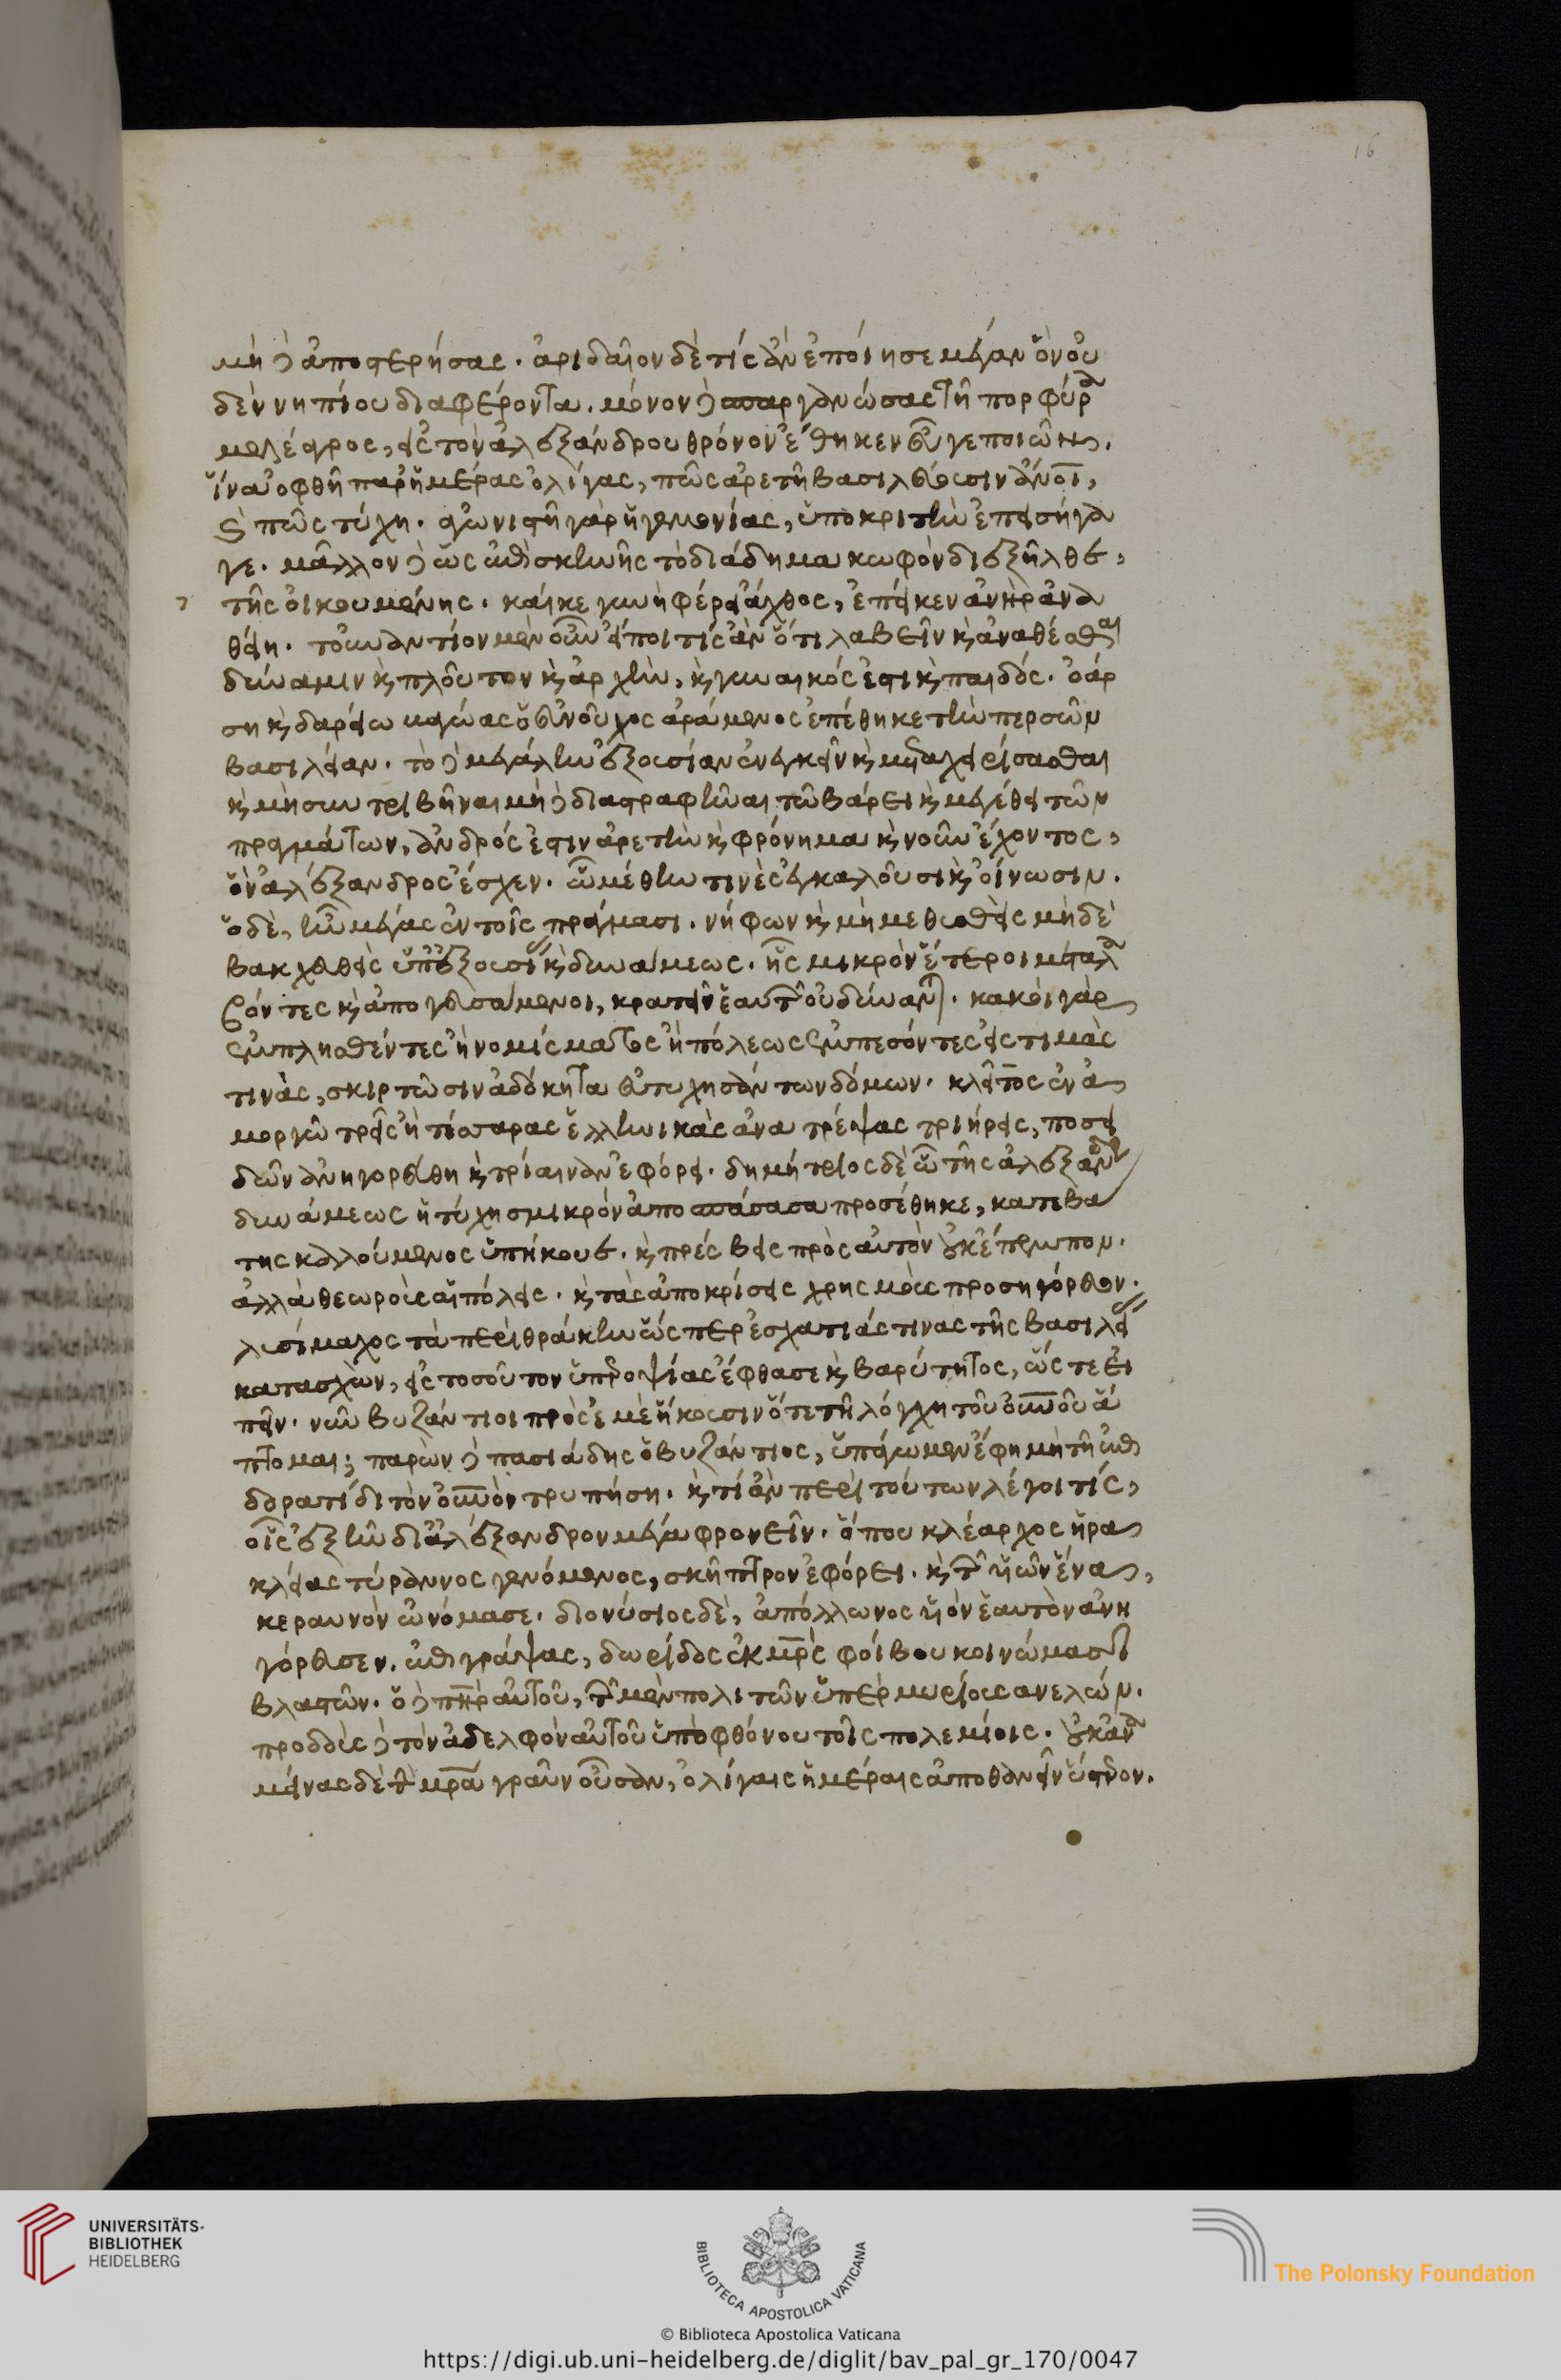 16
μὴ δὲ ἀποστερήσας. ἀριδαῖον δὲ τίς ἂν ἐποίησε μέγαν ὃν οὐ
δὲν νηπίου διαφέροντα. μόνον δὲ σπαργανώσας τῇ πορφύρᾳ
μελέαγρος, εἰς τὸν ἀλεξάνδρου θρόνον ἔθηκεν εὖ γε ποιῶν.
ἵνα ὀφθῇ παρ' ἡμέρας ὀλίγας, πῶς ἀρετῇ βασιλεύουσιν ἄνοι,
καὶ πῶς τύχῃ. ἀγωνιστῇ γὰρ ἡγεμονίας, ὑποκριτὴν ἐπεισήγα
γε. μᾶλλον δὲ ὡς ἐπὶ σκηνῆς τὸ διάδημα κωφὸν διεξῆλθε,
τῆς οἰκουμένης. καί κε γυνὴ φέρει ἄχθος, ἐπεί κεν ἀνὴρ ἀνα
θείη. τοὐναντίον μὲν οὖν εἴποι τίς ἂν ὅτι λαβεῖν καὶ ἀναθέσθαι
δύναμιν καὶ πλοῦτον καὶ ἀρχὴν, καὶ γυναικός ἐστι καὶ παιδός. ὀάρ
ση καὶ δαρείω βαγώας ὁ εὐνοῦχος ἀράμενος ἐπέθηκε τὴν περσῶν
βασιλείαν. τὸ δὲ μεγάλην ἐξουσίαν ἐνεγκεῖν καὶ μεταχειρίσασθαι
καὶ μὴ συντριβῆναι μὴ δὲ διαστραφῆναι τῷ βάρει καὶ μεγέθει τῶν
πραγμάτων, ἀνδρός ἐστιν ἀρετὴν καὶ φρόνημα καὶ νοῦν ἔχοντος,
ὃν ἀλέξανδρος ἔσχεν. ᾧ μέθην τινὲς ἐγκαλοῦσι καὶ οἴνωσιν.
ὁ δὲ, ἦν μέγας ἐν τοῖς πράγμασι. νήφων καὶ μὴ μεθυσθεὶς μὴ δὲ
βακχευθεὶς ὑπ' ἐξουσίας καὶ δυνάμεως. ἧς μικρὸν ἕτεροι μεταλα
βόντες καὶ ἀπογευσάμενοι, κρατεῖν ἑαυτῶν οὐ δύνανται. κακοὶ γὰρ
ἐμπλησθέντες ἢ νομίσματος ἢ πόλεως ἐμπεσόντες εἰς τιμὰς
τινὰς, σκιρτῶσιν ἀδόκητα εὐτυχησάντων δόμων. κλεῖτος ἐν ἀ
μοργῷ τρεῖς ἢ τέσσαρας ἑλληνικὰς ἀνατρέψας τριήρεις, ποσει
δῶν ἀνηγορεύθη καὶ τρίαιναν ἐφόρει. δημήτριος δὲ ᾧ τῆς ἀλεξάνδρου
δυνάμεως ἡ τύχη σμικρὸν ἀποσπάσασα προσέθηκε, καταιβά
της καλούμενος ὑπήκουε. καὶ πρέσβεις πρὸς αὐτὸν οὐκ ἔπεμπον.
ἀλλὰ θεωροὺς αἱ πόλεις. καὶ τὰς ἀποκρίσεις χρησμοὺς προσηγόρευον.
λυσίμαχος τὰ περὶ θράκην ὥσπερ ἐσχατιάς τινας τῆς βασιλείας
κατασχὼν, εἰς τοσοῦτον ὑπεροψίας ἔφθασε καὶ βαρύτητος, ὥς τε εἰ
πεῖν. νῦν βυζάντιοι πρὸς ἐμὲ ἥκουσιν ὅτε τῇ λόγχῃ τοῦ οὐνοῦ ἅ
πτομαι; παρὼν δὲ πασιάδης ὁ βυζάντιος, ὑπάγωμεν ἔφη μὴ τῇ ἐπι
δορατίδι τὸν οὐνὸν τρυπήσῃ. καὶ τί ἂν περὶ τούτων λέγοι τίς,
οἷς ἐξῆν δι' ἀλέξανδρον μέγα φρονεῖν. ὅπου κλέαρχος ἡρα
κλείας τύραννος γενόμενος, σκῆπτρον ἐφόρει. καὶ τῶν υἱῶν ἕνα,
κεραυνὸν ὠνόμασε. διονύσιος δὲ, ἀπόλλωνος υἱὸν ἑαυτὸν ἀνη
γόρευσεν. ἐπιγράψας, δωρίδος ἐκ μρὸς φοίβου κοινώμασι
βλαστών. ὁ δὲ πηρ αὐτοῦ, τῶν μὲν πολιτῶν ὑπὲρ μυρίους ἀνελών.
προδοὺς δὲ τὸν ἀδελφὸν αὐτοῦ ὑπὸ φθόνου τοῖς πολεμίοις. οὐκ ἀνα
μείνας δὲ τὴν μρα γραῦν οὖσαν, ὀλίγαις ἡμέραις ἀποθανεῖν ὕστερον.
UNIVERSITÄTS-
BIBLIOTHEK
HEIDELBERG
BIBLIOTECA APOSTOLICA VATICANA
The Polonsky Foundation
© Biblioteca Apostolica Vaticana
https://digi.ub.uni-heidelberg.de/diglit/bav_pal_gr_170/0047